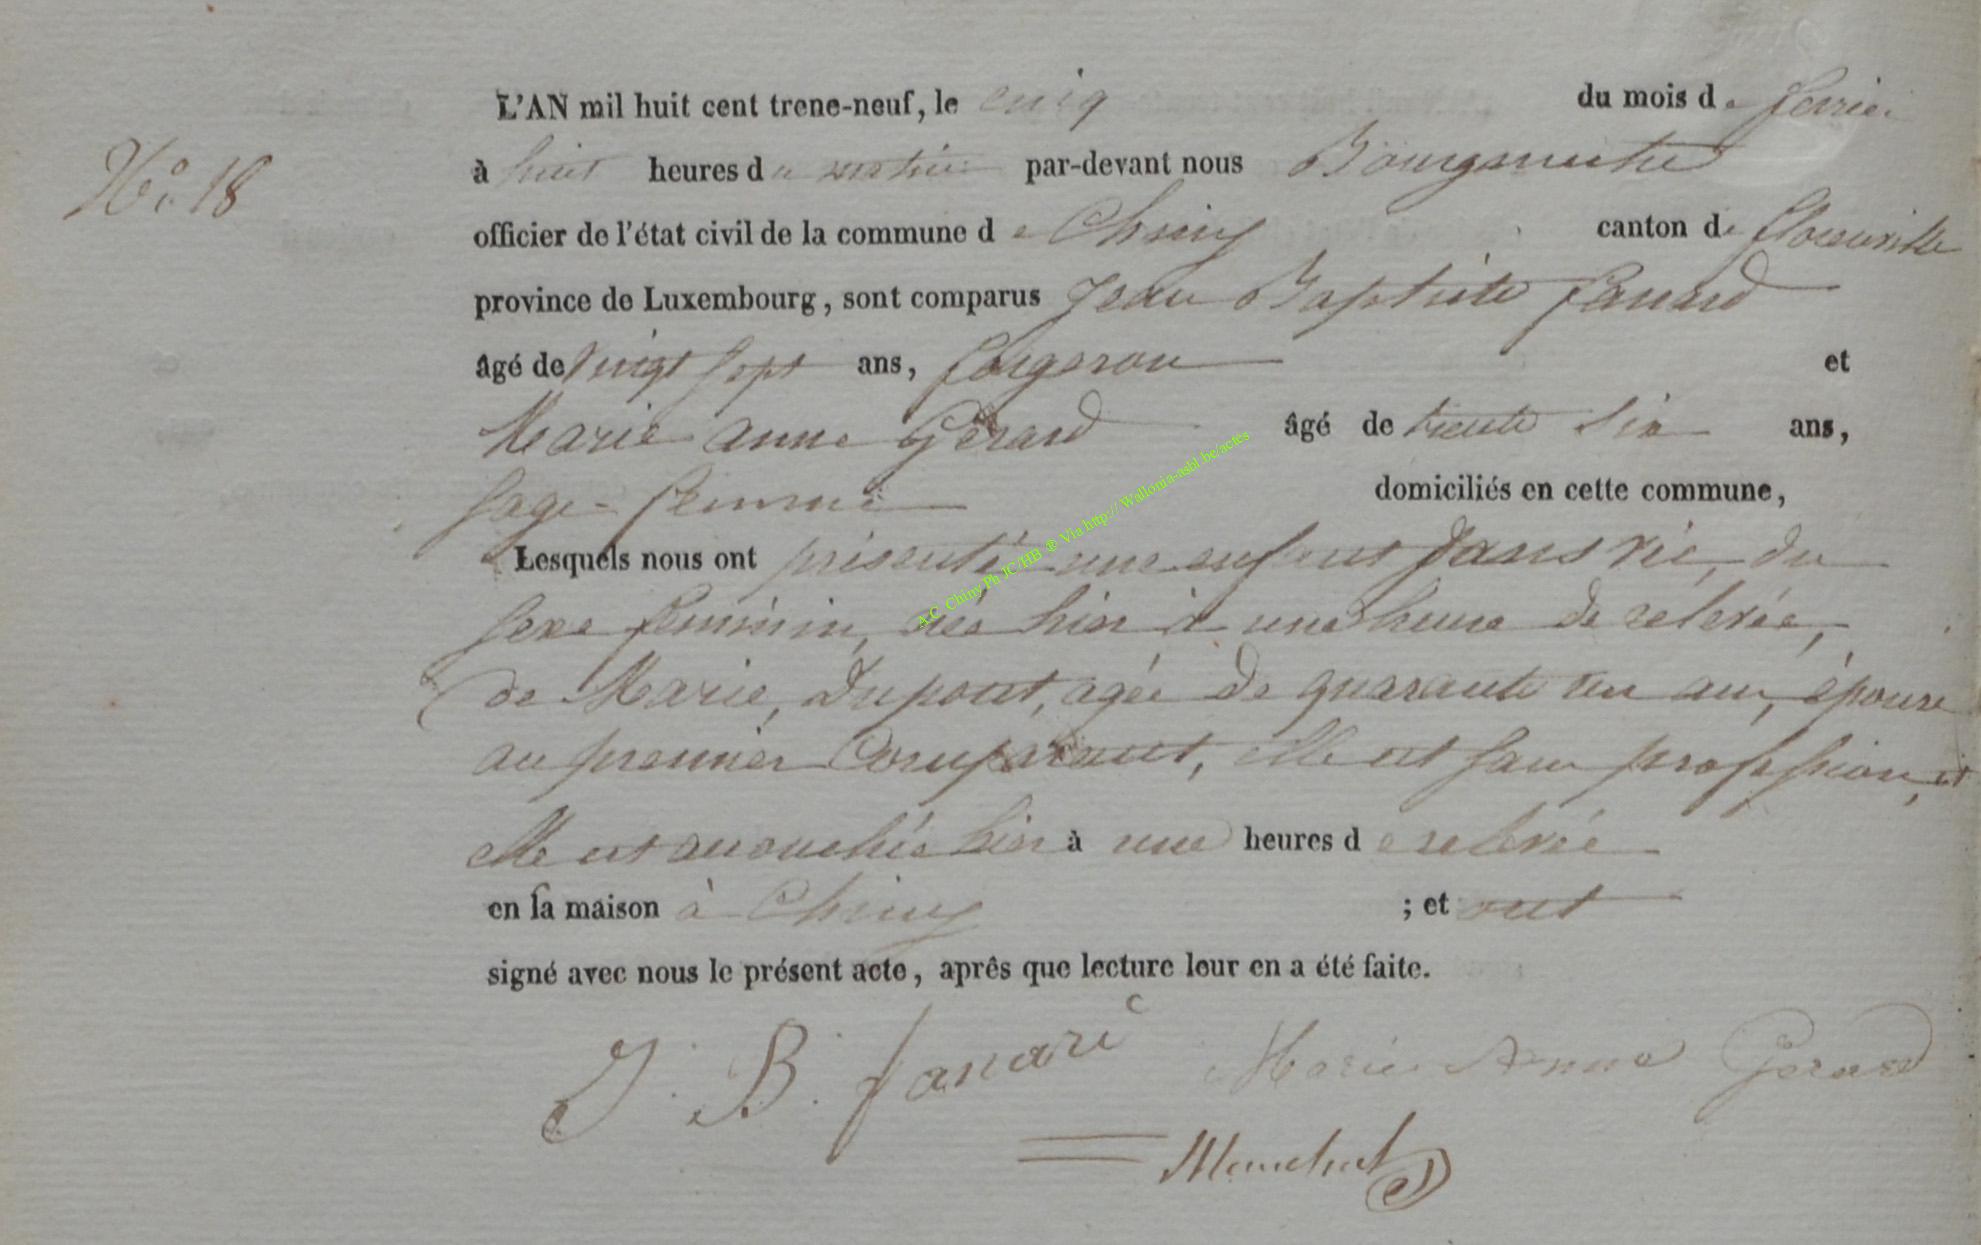 L'AN mil huit cent trene-neuf, le cinq du mois de fevrier
N° 18
à huit heures du matin par-devant nous Bourgmestre
officier de l'état civil de la commune de Chiny canton de florenville
province de Luxembourg, sont comparus Jean Baptiste fanard
âgé de vingt sept ans, forgeron et
Marie anne Gerard âgé de trente six ans,
sage-femme domiciliés en cette commune,
Lesquels nous ont présenté une enfant sans vie, du
sexe feminin, née hier à une heure de relevée,
de Marie, Dupont, agée de quarante un ans, épouse
au premier Comparant, elle est sans profession, et
elle est accouchée hier à une heures de relevée
en sa maison à Chiny ; et ont
signé avec nous le présent acte, après que lecture leur en a été faite.
J. B. fanard Marie Anne Gerard
A.C. Chiny Ph JC/HB ® Via http://Wallonia-asbl.be/actes